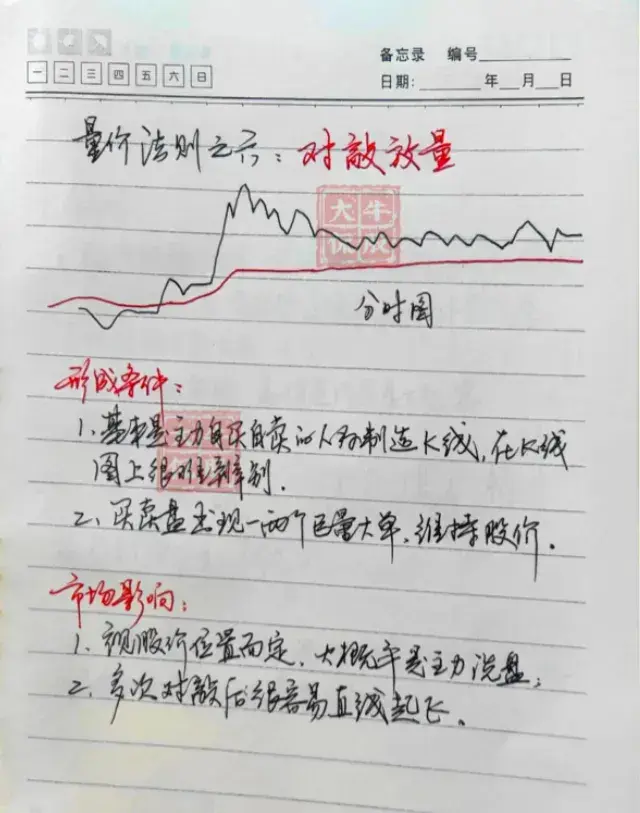 备忘录 编号
一 二 三 四 五 六 日
日期: 年 月 日
量价法则之六：对敲放量
大牛
分时图
形成条件：
1、基本是主力自买自卖的人为制造K线，在K线
图上很难辨别．
2、买卖盘出现一两个巨量大单，维持股价．
市场影响：
1、视股价位置而定，大概率是主力洗盘；
2、多次对敲后很容易直线起飞．